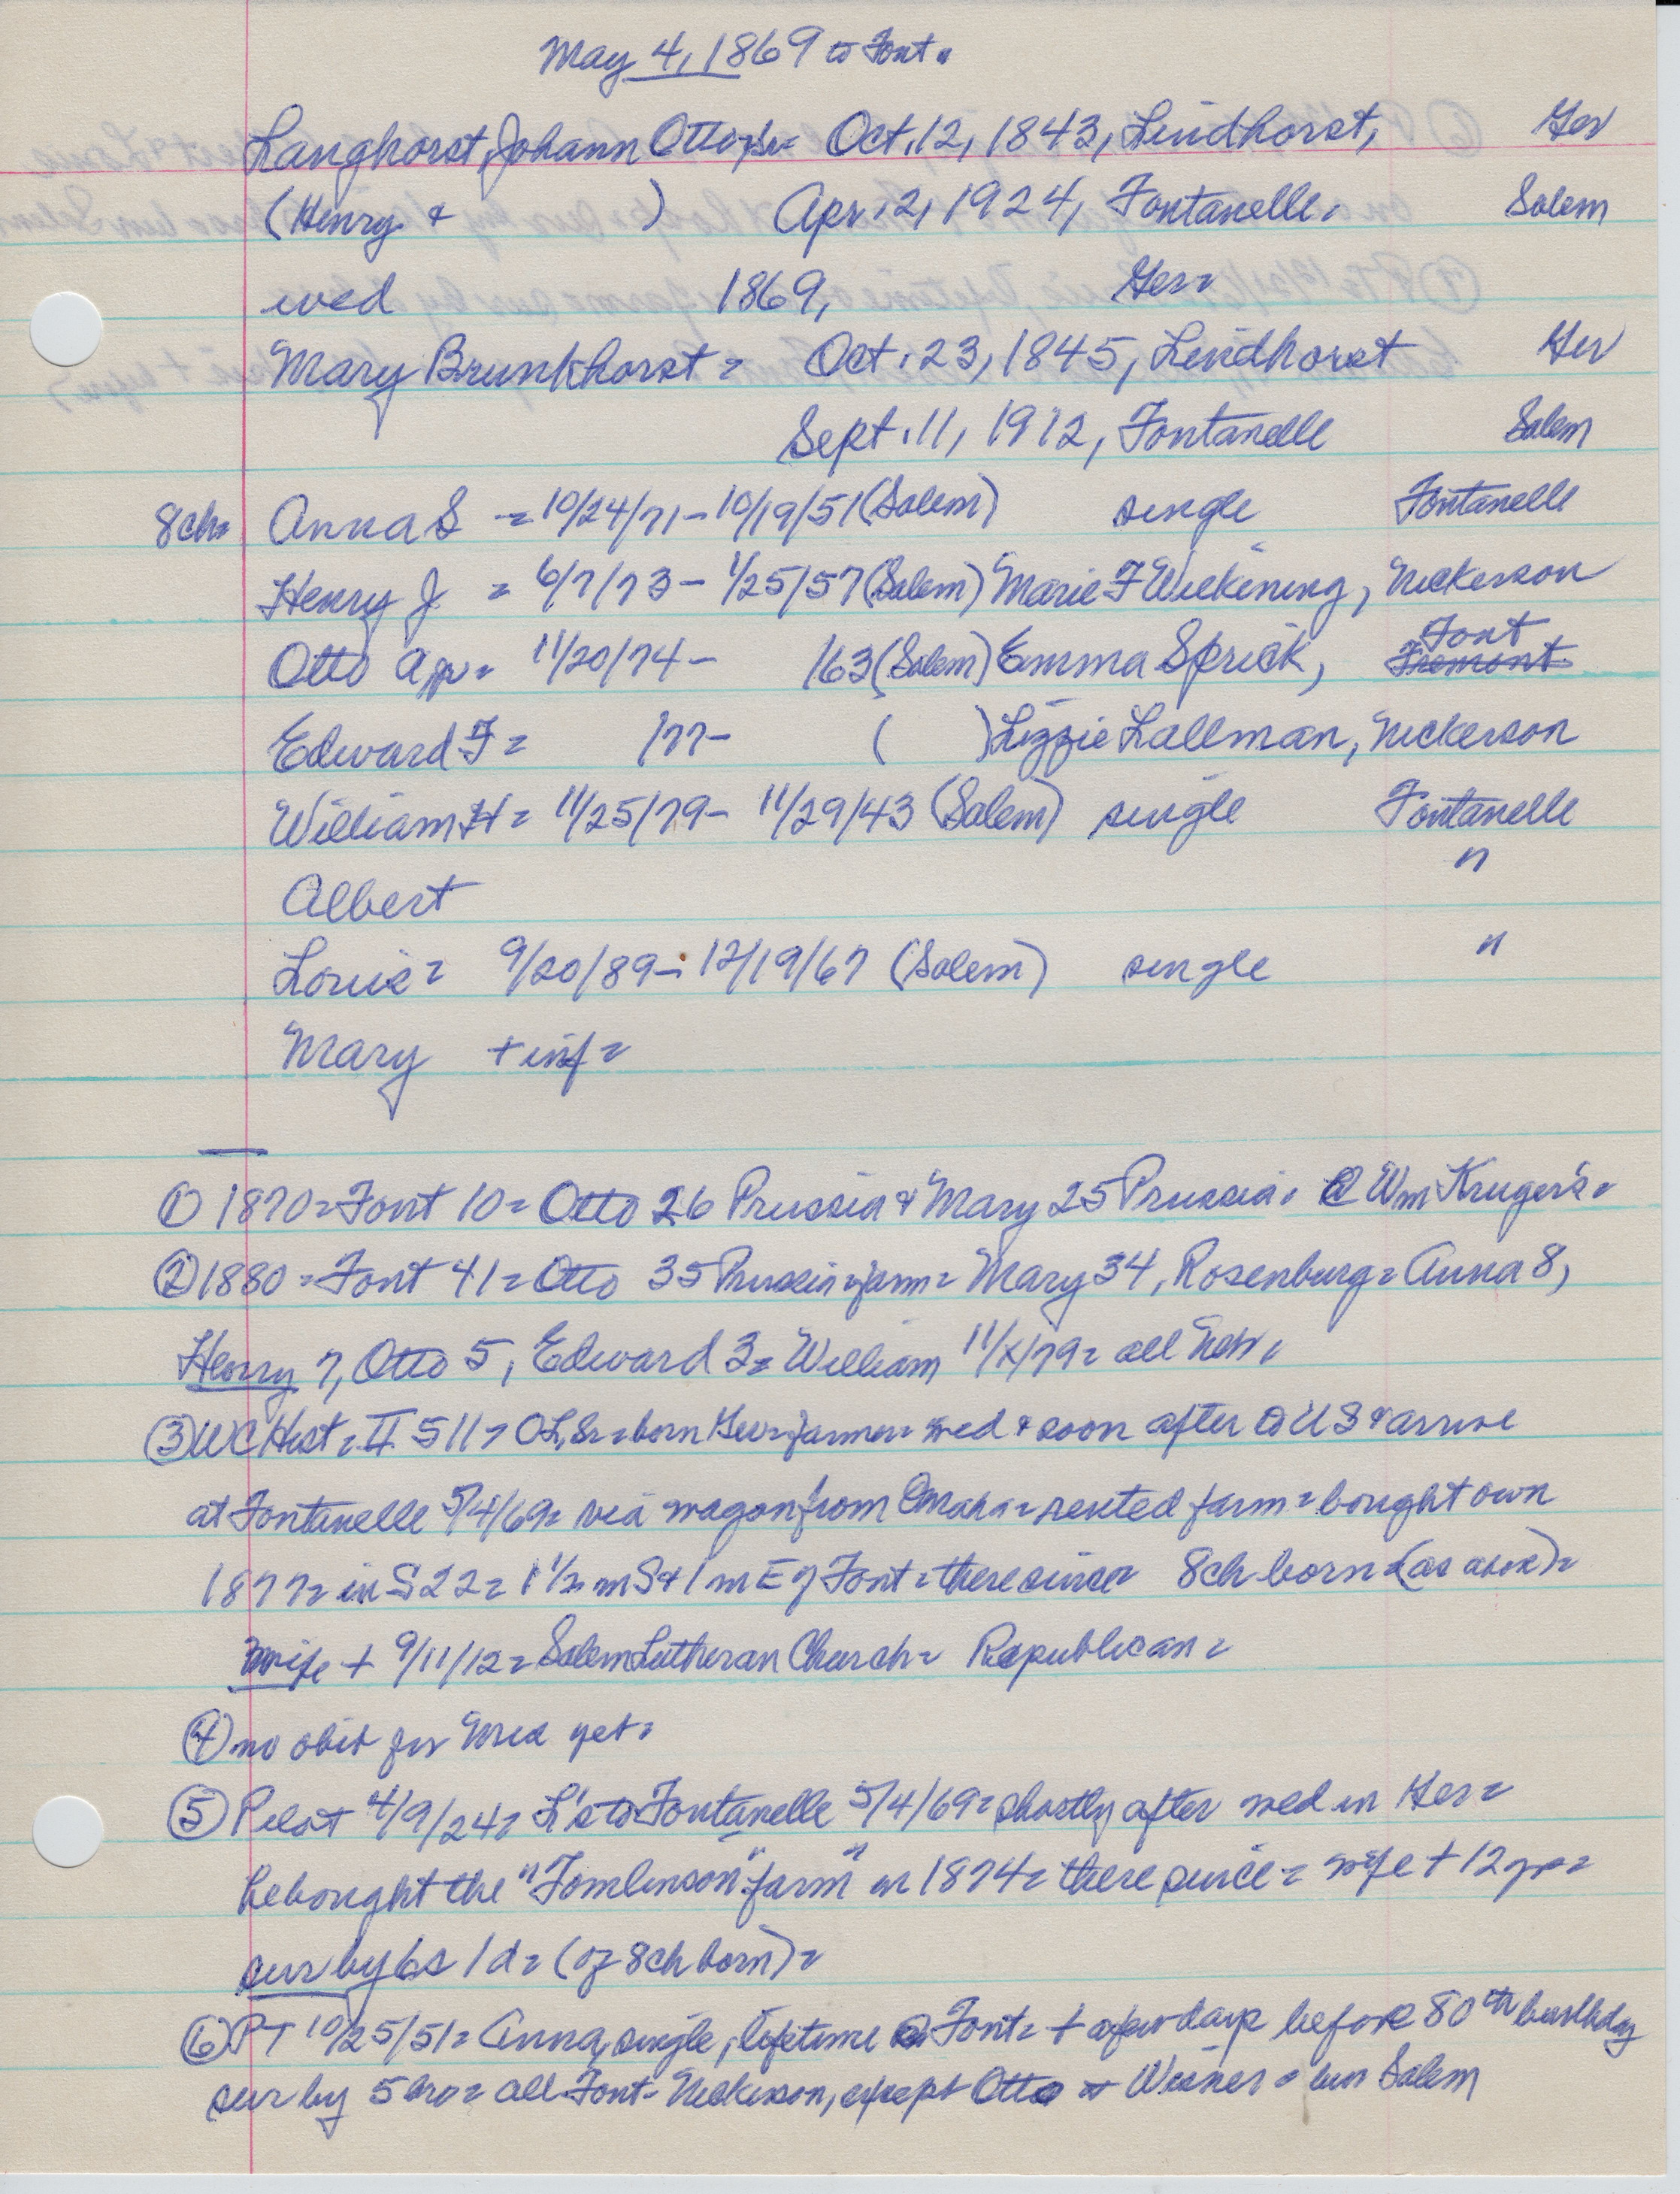 May 4, 1869 to Font.
Langhorst, Johann Otto, sr= Oct. 12, 1843, Lindhorst, Ger
(Henry & ) Apr. 2, 1924, Fontanelle. Salem
wed 1869, Ger=
Mary Brunkhorst = Oct. 23, 1845, Lindhorst Ger
Sept. 11, 1912, Fontanelle Salem
8ch= Anna S = 10/24/71 - 10/19/51 (Salem) single Fontanelle
Henry J = 6/7/73 - 1/25/57 (Salem) Marie F Wilkening, Nickerson
Font
Otto A jr = 11/20/74 - /63 (Salem) Emma Sprick, Fremont
Edward F = /77 - ( ) Lizzie Lallman, Nickerson
William H = 11/25/79 - 11/29/43 (Salem) single Fontanelle
Albert "
Louis = 9/20/89 - 12/19/67 (Salem) single "
Mary + inf =
① 1870 = Font 10 = Otto 26 Prussia & Mary 25 Prussia. @ Wm Kruger's.
② 1880 = Font 41 = Otto 35 Prussia = farm = Mary 34, Rosenburg = Anna 8,
Henry 7, Otto 5, Edward 3 = William 11/x/79 = all Neb.
③ WC Hist = II 511 = OL, Sr = born Ger = farmer = wed & soon after to US & arrive
at Fontanelle 5/4/69 = via wagon from Omaha = rented farm = bought own
1877 = in S22 = 1 1/2 m S & 1 m E of Font = there since = 8ch born = (as above) =
wife + 9/11/12 = Salem Lutheran Church = Republican =
④ no obit for Mrs yet.
⑤ Pilot 4/9/24 = L's to Fontanelle 5/4/69 = shortly after wed in Ger =
he bought the "Tomlinson" farm" in 1874 = there since = wife + 12 yr =
sur by 6s 1d = (of 8ch born) =
⑥ PT 10/25/51 = Anna, single, lifetime @ Font = + a few days before 80th birthday
sur by 5 bro = all Font - Nickerson, except Otto = Wisner = bur Salem